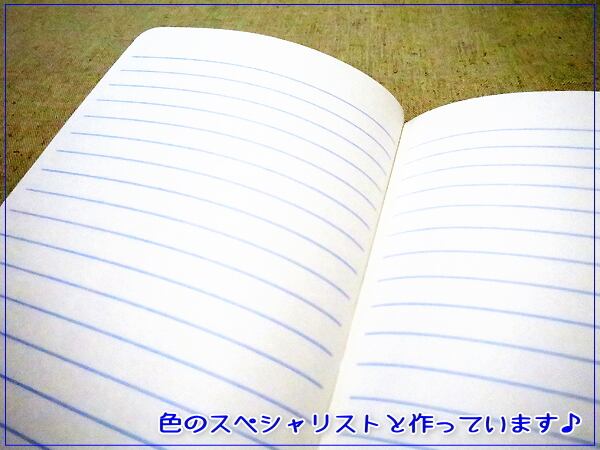 色のスペシャリストと作っています♪